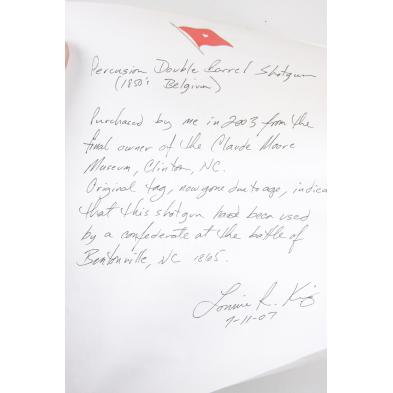 Percusion Double Barrel Shotgun
(1850's Belgium)
Purchased by me in 2003 from the
final owner of the Claude Moore
Museum, Clinton, NC.
Original tag, now gone due to age, indica
that this shotgun had been used
by a confederate at the battle of
Bentonville, NC 1865.
Lonnie R. King
9-11-07